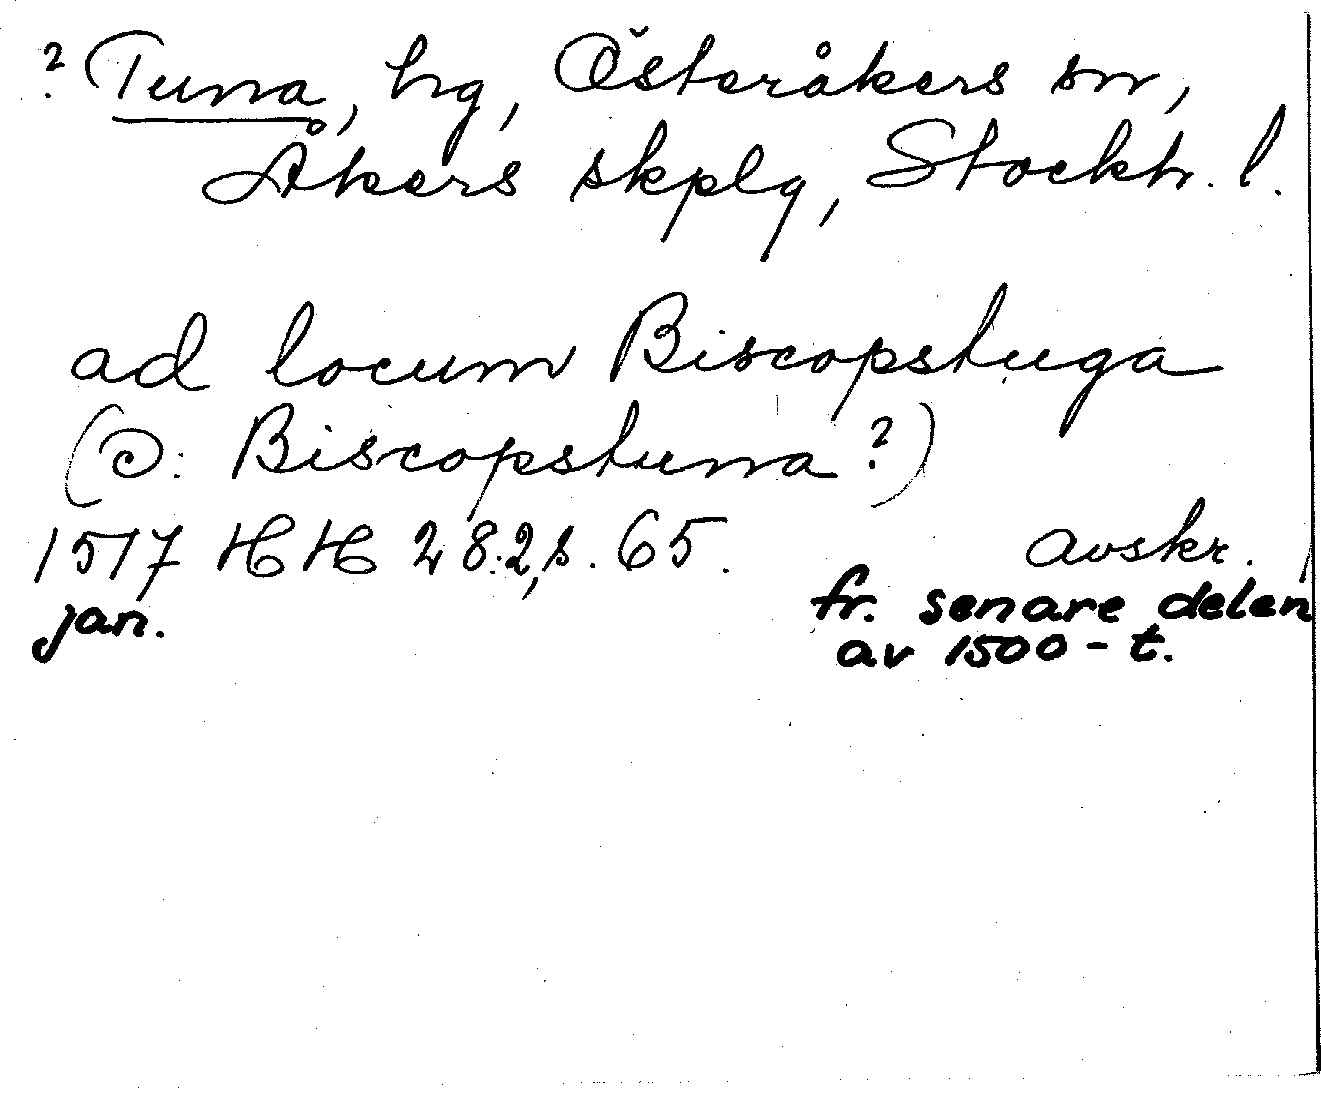 ? Tuna, hg, Österåkers sn,
Åkers skplg, Stockh. l.
ad locum Biscopstuga
(ɔ: Biscopstuna?)
1517 HH 28:2, s. 65. avskr.
jan. fr. senare delen
av 1500-t.